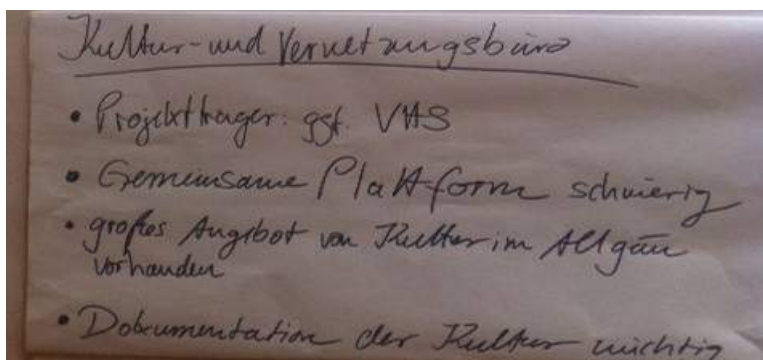 Kultur- und Vernetzungsbüro
• Projektträger: ggf. VHS
• Gemeinsame Plattform schwierig
• großes Angebot von Kultur im Allgäu
vorhanden
• Dokumentation der Kultur wichtig